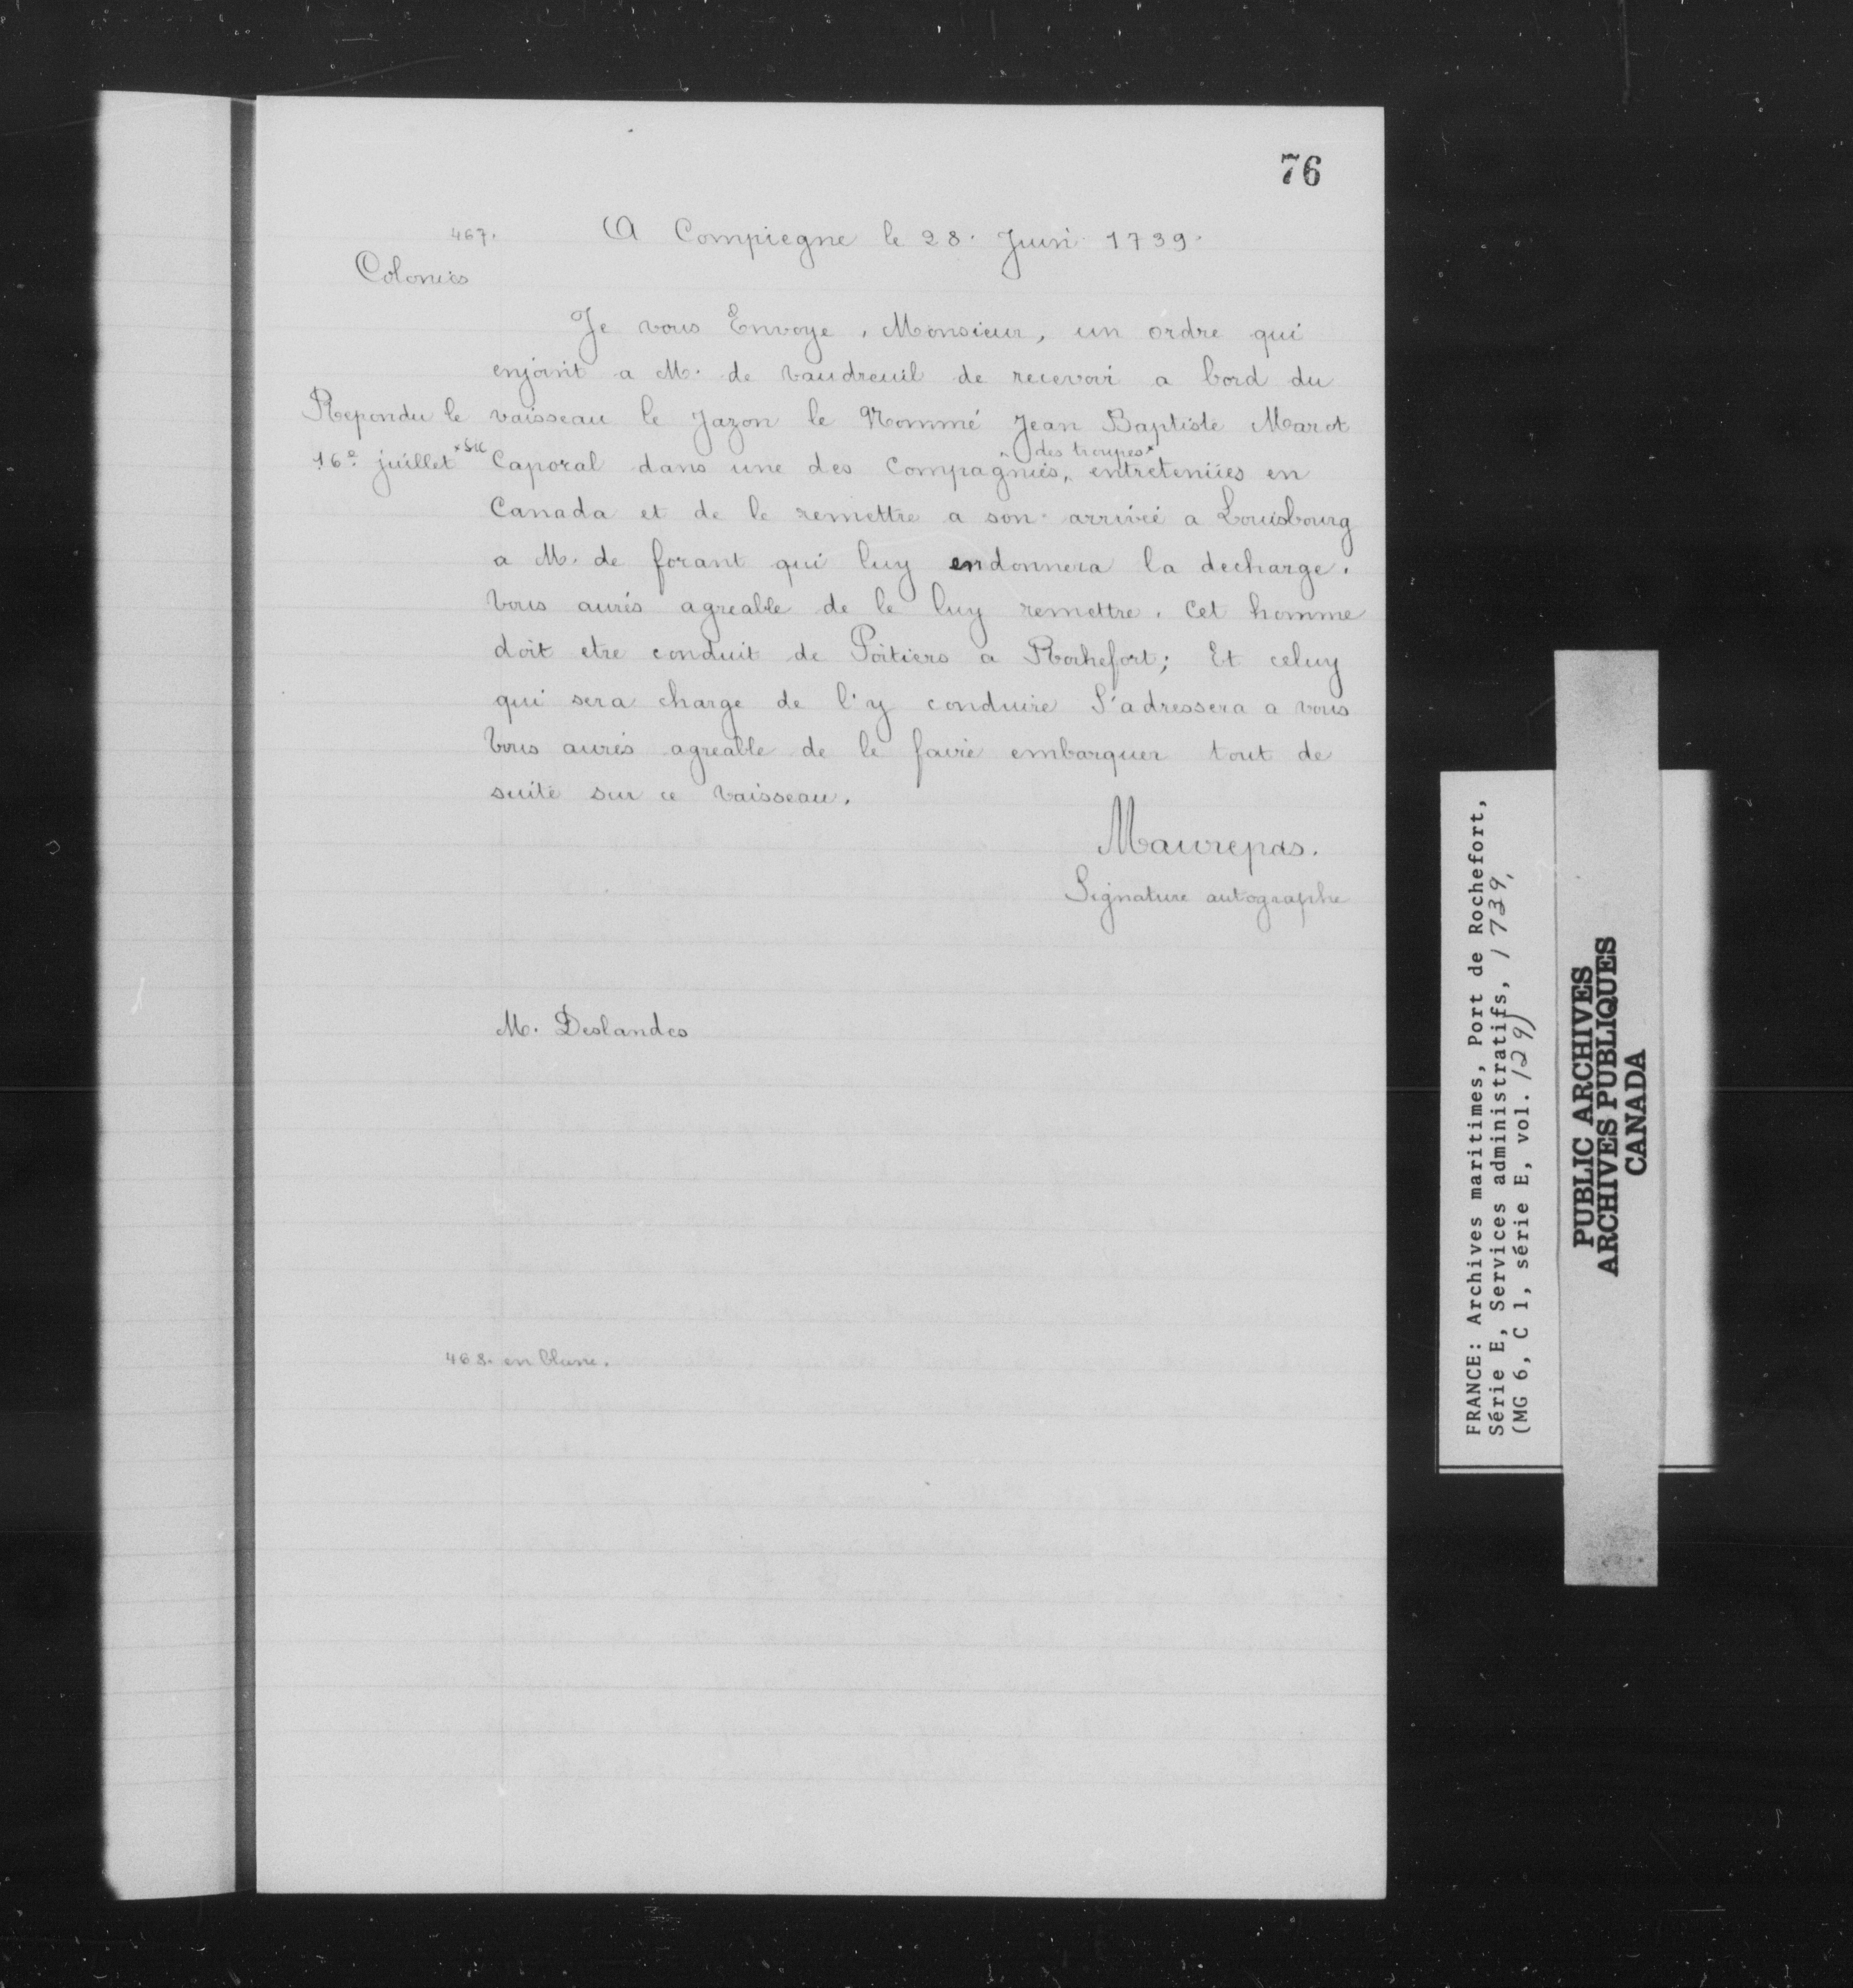 76
467.
A Compiegne le 28. Juin 1739.
Colonies
Je vous Envoye, Monsieur, un ordre qui
enjoint a M. de Vaudreuil de recevoir a bord du
Repondu le
16e juillet *sic
vaisseau le Jazon le Nommé Jean Baptiste Marot
des troupes*
Caporal dans une des Compagnies, entreteniies en
Canada et de le remettre a son arrivée a Louisbourg
a M. de forant qui luy en donnera la decharge.
Vous aurés agreable de le luy remettre. Cet homme
doit etre conduit de Poitiers a Rochefort; Et celuy
qui sera charge de l'y conduire S'adressera a vous
Vous aurés agreable de le faire embarquer tout de
suite sur ce Vaisseau.
Maurepas.
Signature autographe
M. Deslandes
468. en blanc.
FRANCE: Archives maritimes, Port de Rochefort,
Série E, Services administratifs, 1739,
(MG 6, C 1, série E, vol. 129)
PUBLIC ARCHIVES
ARCHIVES PUBLIQUES
CANADA